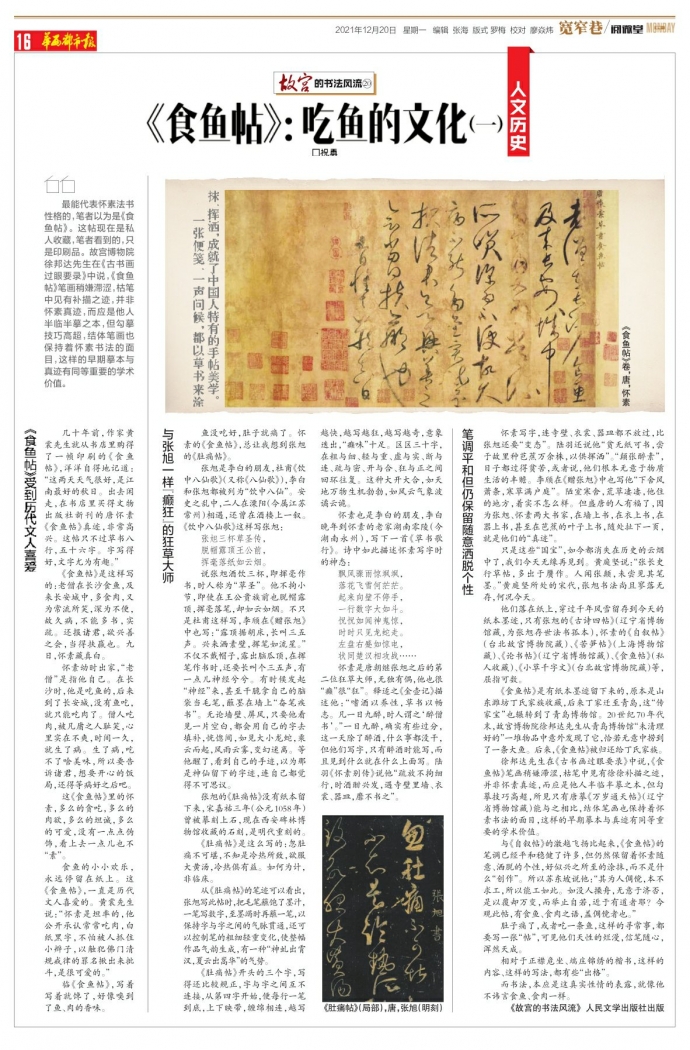 16 华西都市报
2021年12月20日 星期一 编辑 张海 版式 罗梅 校对 廖焱炜 宽窄巷/阅微堂 MONDAY
故宫的书法风流⑳
《食鱼帖》:吃鱼的文化(一)
□祝勇
人文历史
最能代表怀素法书
性格的,笔者以为是《食
鱼帖》。这帖现在是私
人收藏,笔者看到的,只
是印刷品。故宫博物院
徐邦达先生在《古书画
过眼要录》中说,《食鱼
帖》笔画稍嫌滞涩,枯笔
中见有补描之迹,并非
怀素真迹,而应是他人
半临半摹之本,但勾摹
技巧高超,结体笔画也
保持着怀素书法的面
目,这样的早期摹本与
真迹有同等重要的学术
价值。
一张便笺,一声问候,都以草书来涂
抹、挥洒,成就了中国人特有的手帖美学。
《食鱼帖》卷,唐,怀素
《食鱼帖》受到历代文人喜爱
几十年前,作家黄
裳先生就从书店里购得
了一帧印刷的《食鱼
帖》,洋洋自得地记道:
“这两天天气很好,是江
南最好的秋日。出去闲
走,在书店里买得文物
出版社新刊的唐怀素
《食鱼帖》真迹,非常高
兴。这帖只不过草书八
行,五十六字。字写得
好,文字尤为有趣。”
《食鱼帖》是这样写
的:老僧在长沙食鱼,及
来长安城中,多食肉,又
为常流所笑,深为不便,
故久病,不能多书,实
疏。还报诸君,欲兴善
之会,当得扶羸也。九
日,怀素藏真白。
怀素幼时出家,“老
僧”是指他自己。在长
沙时,他是吃鱼的,后来
到了长安城,没有鱼吃,
就只能吃肉了。僧人吃
肉,被凡庸之人耻笑,心
里实在不爽,时间一久,
就生了病。生了病,吃
不了啥美味,所以要告
诉诸君,想要开心的饭
局,还得等病好之后吧。
这《食鱼帖》里的怀
素,多么的贪吃,多么的
肉欲,多么的坦诚,多么
的可爱,没有一点点伪
饰,看上去一点儿也不
“素”。
食鱼的小小欢乐,
永远停留在纸上。这
《食鱼帖》,一直是历代
文人喜爱的。黄裳先生
说:“怀素是坦率的,他
公开承认常常吃肉,白
纸黑字,不怕被人抓住
小辫子,以触犯佛门清
规戒律的罪名揪出来批
斗,是很可爱的。”
临《食鱼帖》,写着
写着就馋了,好像嗅到
了鱼、肉的香味。
与张旭一样“癫狂”的狂草大师
鱼没吃好,肚子就痛了。怀
素的《食鱼帖》,总让我想到张旭
的《肚痛帖》。
张旭是李白的朋友,杜甫《饮
中八仙歌》(又称《八仙歌》),李白
和张旭都被列为“饮中八仙”。安
史之乱中,二人在溧阳(今属江苏
常州)相遇,还曾在酒楼上一叙。
《饮中八仙歌》这样写张旭:
张旭三杯草圣传,
脱帽露顶王公前,
挥毫落纸如云烟。
说张旭酒饮三杯,即挥毫作
书,时人称为“草圣”。他不拘小
节,即使在王公贵戚前也脱帽露
顶,挥毫落笔,却如云如烟。不只
是杜甫这样写,李颀在《赠张旭》
中也写:“露顶据胡床,长叫三五
声。兴来洒素壁,挥笔如流星。”
不仅不戴帽子,露出脑瓜顶,在挥
笔作书时,还要长叫个三五声,有
一点儿神经兮兮。有时候发起
“神经”来,甚至干脆拿自己的脑
袋当毛笔,蘸墨在墙上“奋笔疾
书”。无论墙壁、屏风,只要他看
见一片空白,都会用自己的字去
填补,恍惚间,如见大小龙蛇,乘
云而起,风雨云雾,变幻迷离。等
他醒了,看到自己的手迹,以为那
是神仙留下的字迹,连自己都觉
得不可思议。
张旭的《肚痛帖》没有纸本留
下来,宋嘉祐三年(公元1058年)
曾被摹刻上石,现在西安碑林博
物馆收藏的石刻,是明代重刻的。
《肚痛帖》是这么写的:忽肚
痛不可堪,不知是冷热所致,欲服
大黄汤,冷热俱有益。如何为计,
非临床。
从《肚痛帖》的笔迹可以看出,
张旭写此帖时,把毛笔蘸饱了墨汁,
一笔写数字,至墨竭时再蘸一笔,以
保持字与字之间的气脉贯通,还可
以控制笔的粗细轻重变化,使整幅
作品气韵生成,有一种“神虬出霄
汉,夏云出嵩华”的气势。
《肚痛帖》开头的三个字,写
得还比较规正,字与字之间互不
连接,从第四字开始,便每行一笔
到底,上下映带,缠绵相连,越写
越快,越写越狂,越写越奇,意象
迭出,“癫味”十足。区区三十字,
在粗与细、轻与重、虚与实、断与
连、疏与密、开与合、狂与正之间
回环往复。这种大开大合,如天
地万物生机勃勃,如风云气象波
谲云诡。
怀素也是李白的朋友,李白
晚年到怀素的老家湖南零陵(今
湖南永州),写下一首《草书歌
行》。诗中如此描述怀素写字时
的神态:
飘风骤雨惊飒飒,
落花飞雪何茫茫。
起来向壁不停手,
一行数字大如斗。
恍恍如闻神鬼惊,
时时只见龙蛇走。
左盘右蹙如惊电,
状同楚汉相攻战……
怀素是唐朝继张旭之后的第
二位狂草大师,无独有偶,他也很
“癫”很“狂”。释适之《金壶记》描
述他:“嗜酒以养性,草书以畅
志。凡一日九醉,时人谓之‘醉僧
书’。”一日九醉,确实有些过分,
这一天除了醉酒,什么事都没干,
但他们写字,只有醉酒时能写,而
且见到什么就在什么上面写。陆
羽《怀素别传》说他“疏放不拘细
行,时酒酣兴发,遇寺壁里墙、衣
裳、器皿,靡不书之”。
《肚痛帖》(局部),唐,张旭(明刻)
笔调平和但仍保留随意洒脱个性
怀素写字,连寺壁、衣裳、器皿都不放过,比
张旭还要“变态”。陆羽还说他“贫无纸可书,尝
于故里种芭蕉万余株,以供挥洒”。“颠张醉素”,
日子都过得贫苦,或者说,他们根本无意于物质
生活的丰赡。李颀在《赠张旭》中也写他“下舍风
萧条,寒草满户庭”。陋室寒舍,荒草凄凄,他住
的地方,着实不怎么样。但盛唐的人有福了,因
为张旭、怀素两大书家,在墙上书,在衣上书,在
器上书,甚至在芭蕉的叶子上书,随处扯下一页,
就是他们的“真迹”。
只是这些“国宝”,如今都消失在历史的云烟
中了,我们今天无缘再见到。黄庭坚说:“张长史
行草帖,多出于赝作。人间张颠,未尝见其笔
墨。”黄庭坚所处的宋代,张旭书法尚且寥落无
存,何况今天。
他们落在纸上,穿过千年风雪留存到今天的
纸本墨迹,只有张旭的《古诗四帖》(辽宁省博物
馆藏,为张旭存世法书孤本),怀素的《自叙帖》
(台北故宫博物院藏)、《苦笋帖》(上海博物馆
藏)、《论书帖》(辽宁省博物馆藏)、《食鱼帖》(私
人收藏)、《小草千字文》(台北故宫博物院藏)等,
屈指可数。
《食鱼帖》是有纸本墨迹留下来的,原本是山
东潍坊丁氏家族收藏,后来丁家迁至青岛,这“传
家宝”也辗转到了青岛博物馆。20世纪70年代
末,故宫博物院徐邦达先生从青岛博物馆“未清理
好的”一堆物品中意外发现了它,恰若无意中捞到
了一条大鱼。后来,《食鱼帖》被归还给丁氏家族。
徐邦达先生在《古书画过眼要录》中说,《食
鱼帖》笔画稍嫌滞涩,枯笔中见有徐徐补描之迹,
并非怀素真迹,而应是他人半临半摹之本,但勾
摹技巧高超,所见只有唐摹《万岁通天帖》(辽宁
省博物馆藏)能与之相比,结体笔画也保持着怀
素书法的面目,这样的早期摹本与真迹有同等重
要的学术价值。
与《自叙帖》的激越飞扬比起来,《食鱼帖》的
笔调已经平和稳健了许多,但仍然保留着怀素随
意、洒脱的个性,好似兴之所至的涂抹,而不是什
么“创作”。所以苏东坡说他:“其为人倜傥,本不
求工,所以能工如此。如没人操舟,无意于济否,
是以覆却万变,而举止自若,近于有道者耶?今
观此帖,有食鱼、食肉之语,盖倜傥者也。”
肚子痛了,或者吃一条鱼,这样的寻常事,都
要写一张“帖”,可见他们天性的烂漫,信笔随心,
浑然天成。
相对于正襟危坐、端庄铭铸的楷书,这样的
内容、这样的写法,都有些“出格”。
而书法,本应是这真实性情的表露,就像他
不讳言食鱼、食肉一样。
《故宫的书法风流》人民文学出版社出版